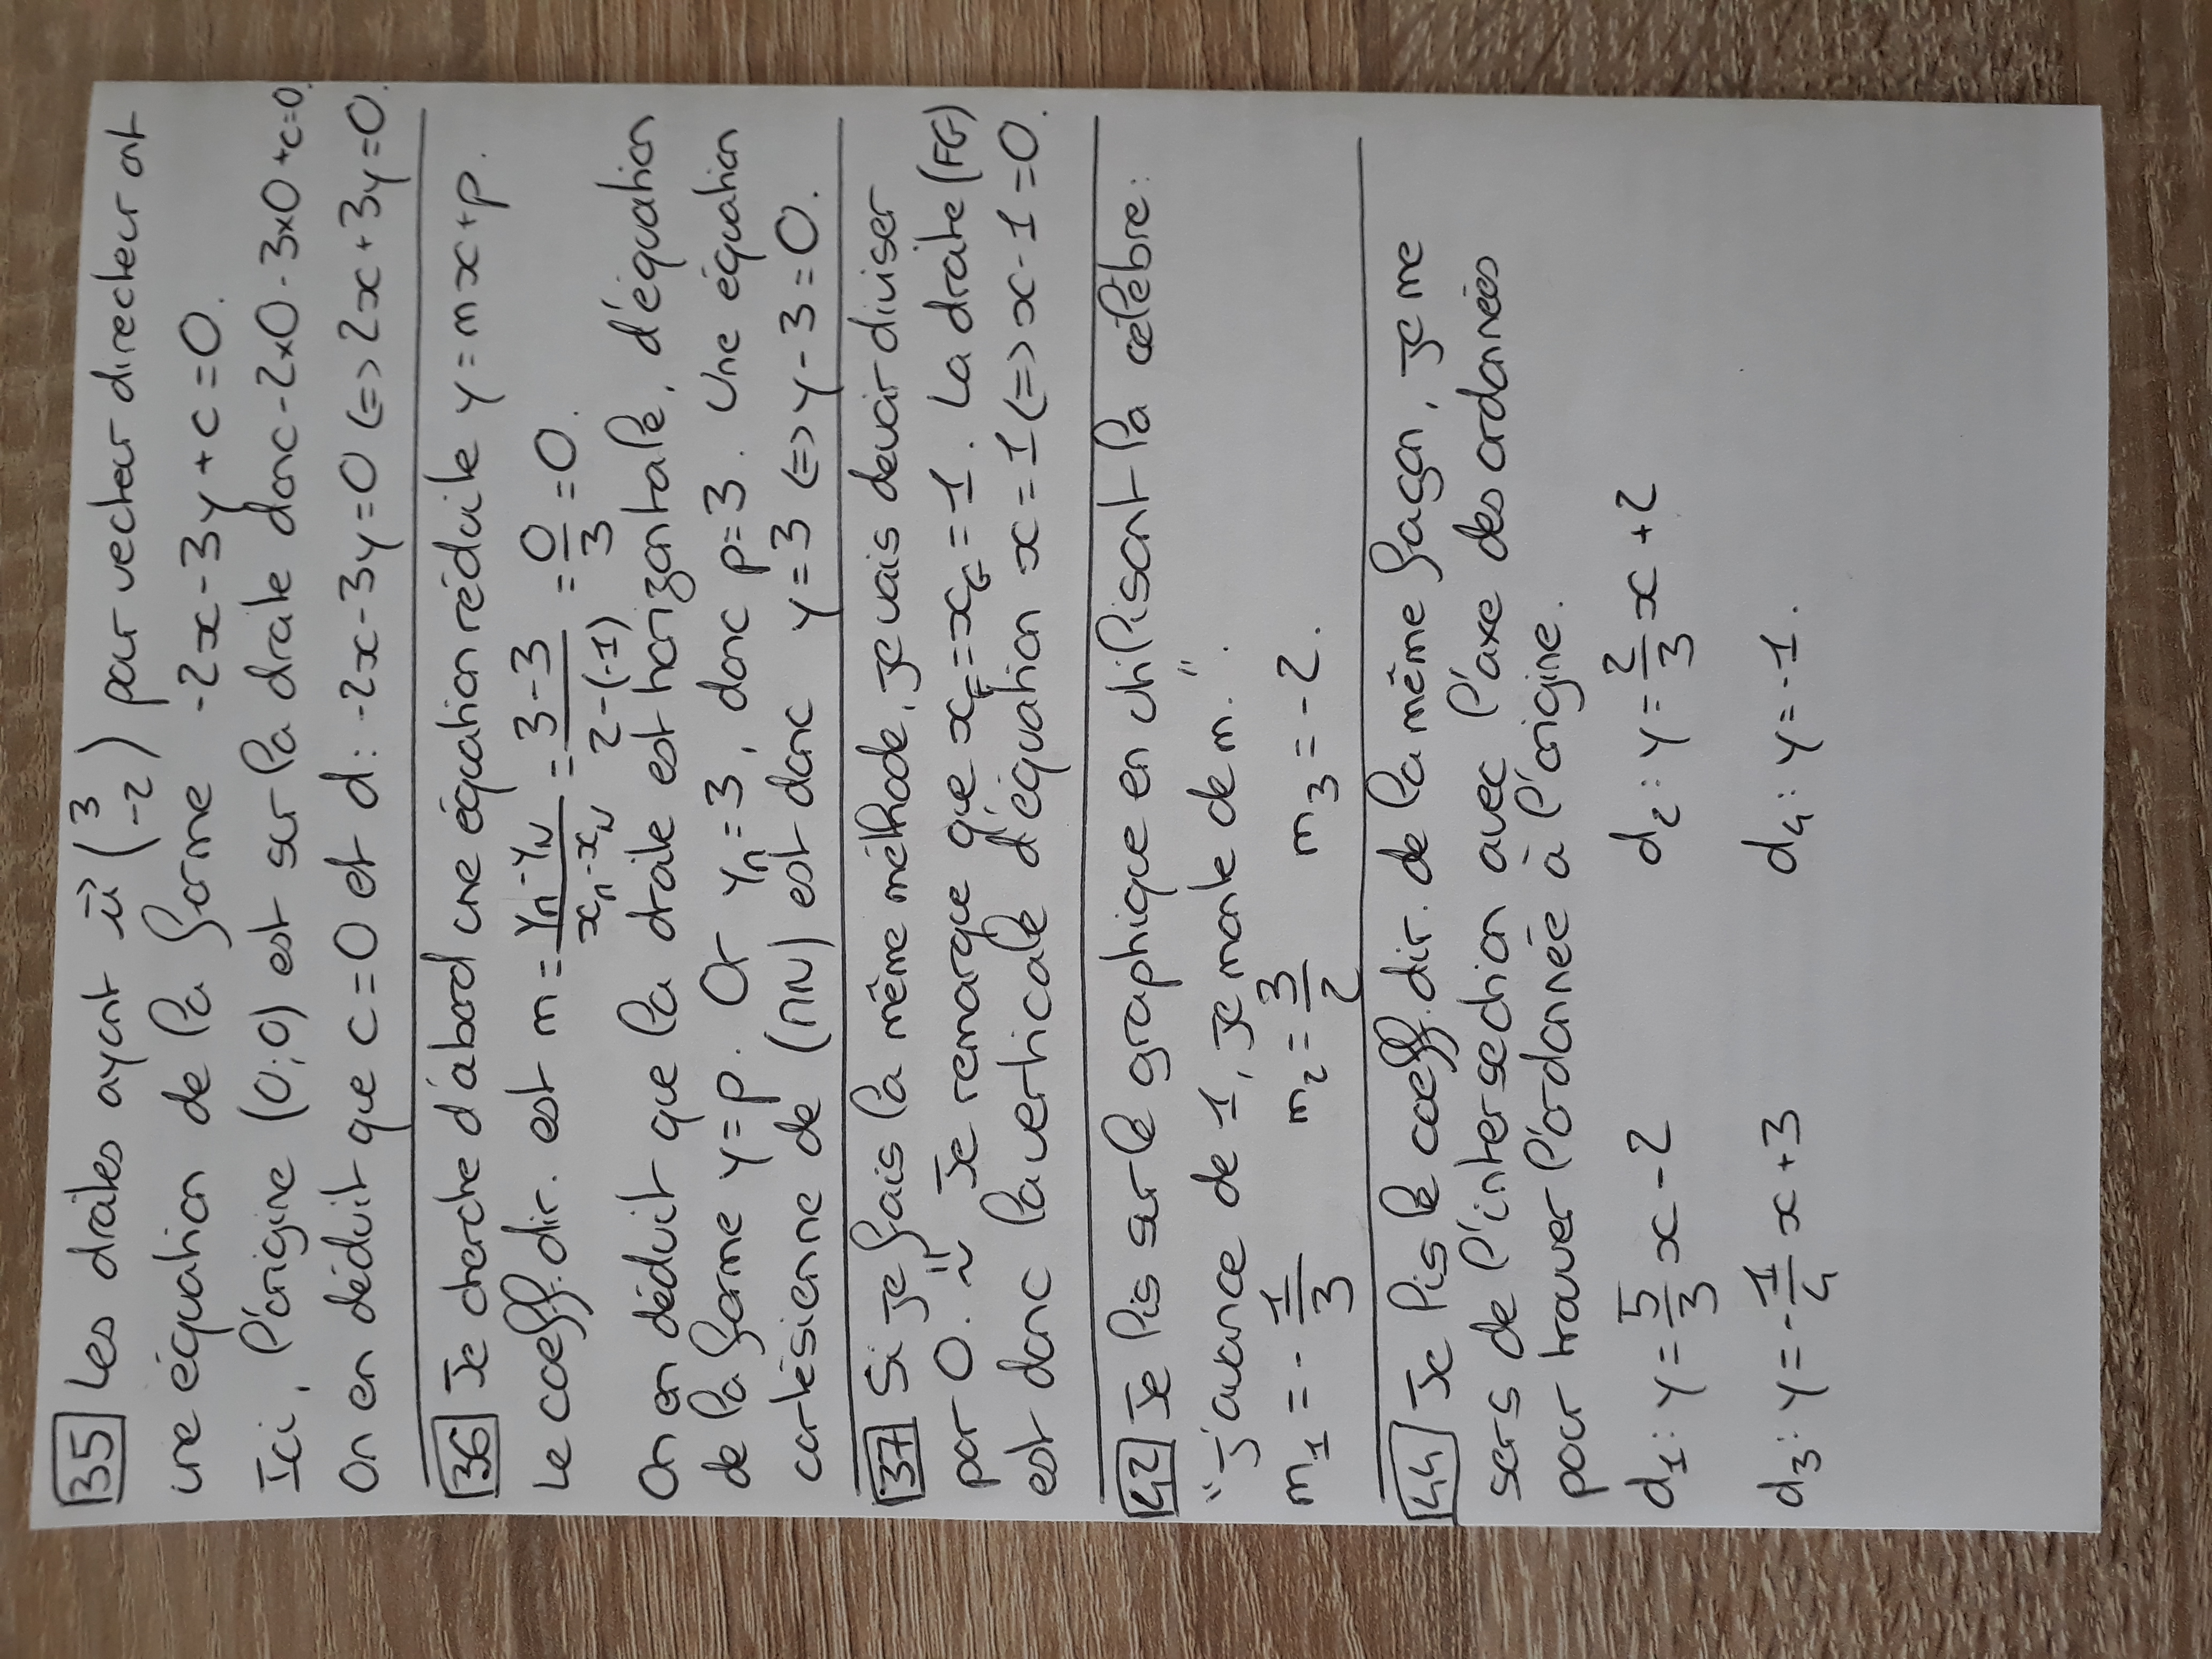 35 Les droites ayant u⃗ (3 -2) pour vecteur directeur ont
une équation de la forme -2x-3y+c=0.
Ici, l'origine (0;0) est sur la droite donc -2×0-3×0+c=0.
On en déduit que c=0 et d: -2x-3y=0 <=> 2x+3y=0.
36 Je cherche d'abord une équation réduite y=mx+p.
Le coeff. dir. est m = (y_M - y_N)/(x_M - x_N) = (3-3)/(2-(-1)) = 0/3 = 0.
On en déduit que la droite est horizontale, d'équation
de la forme y=p. Or y_M=3, donc p=3. Une équation
cartésienne de (MN) est donc y=3 <=> y-3=0.
37 Si je fais la même méthode, je vais devoir diviser
par 0. Je remarque que x_F=x_G=1. La droite (FG)
est donc la verticale d'équation x=1 <=> x-1=0.
42 Je lis sur le graphique en utilisant la célèbre:
"j'avance de 1, je monte de m.".
m_1 = -1/3 m_2 = 3/2 m_3 = -2.
44 Je lis le coeff. dir. de la même façon, je me
sers de l'intersection avec l'axe des ordonnées
pour trouver l'ordonnée à l'origine.
d_1: y = 5/3 x - 2 d_2: y = 2/3 x + 2
d_3: y = -1/4 x + 3 d_4: y = -1.